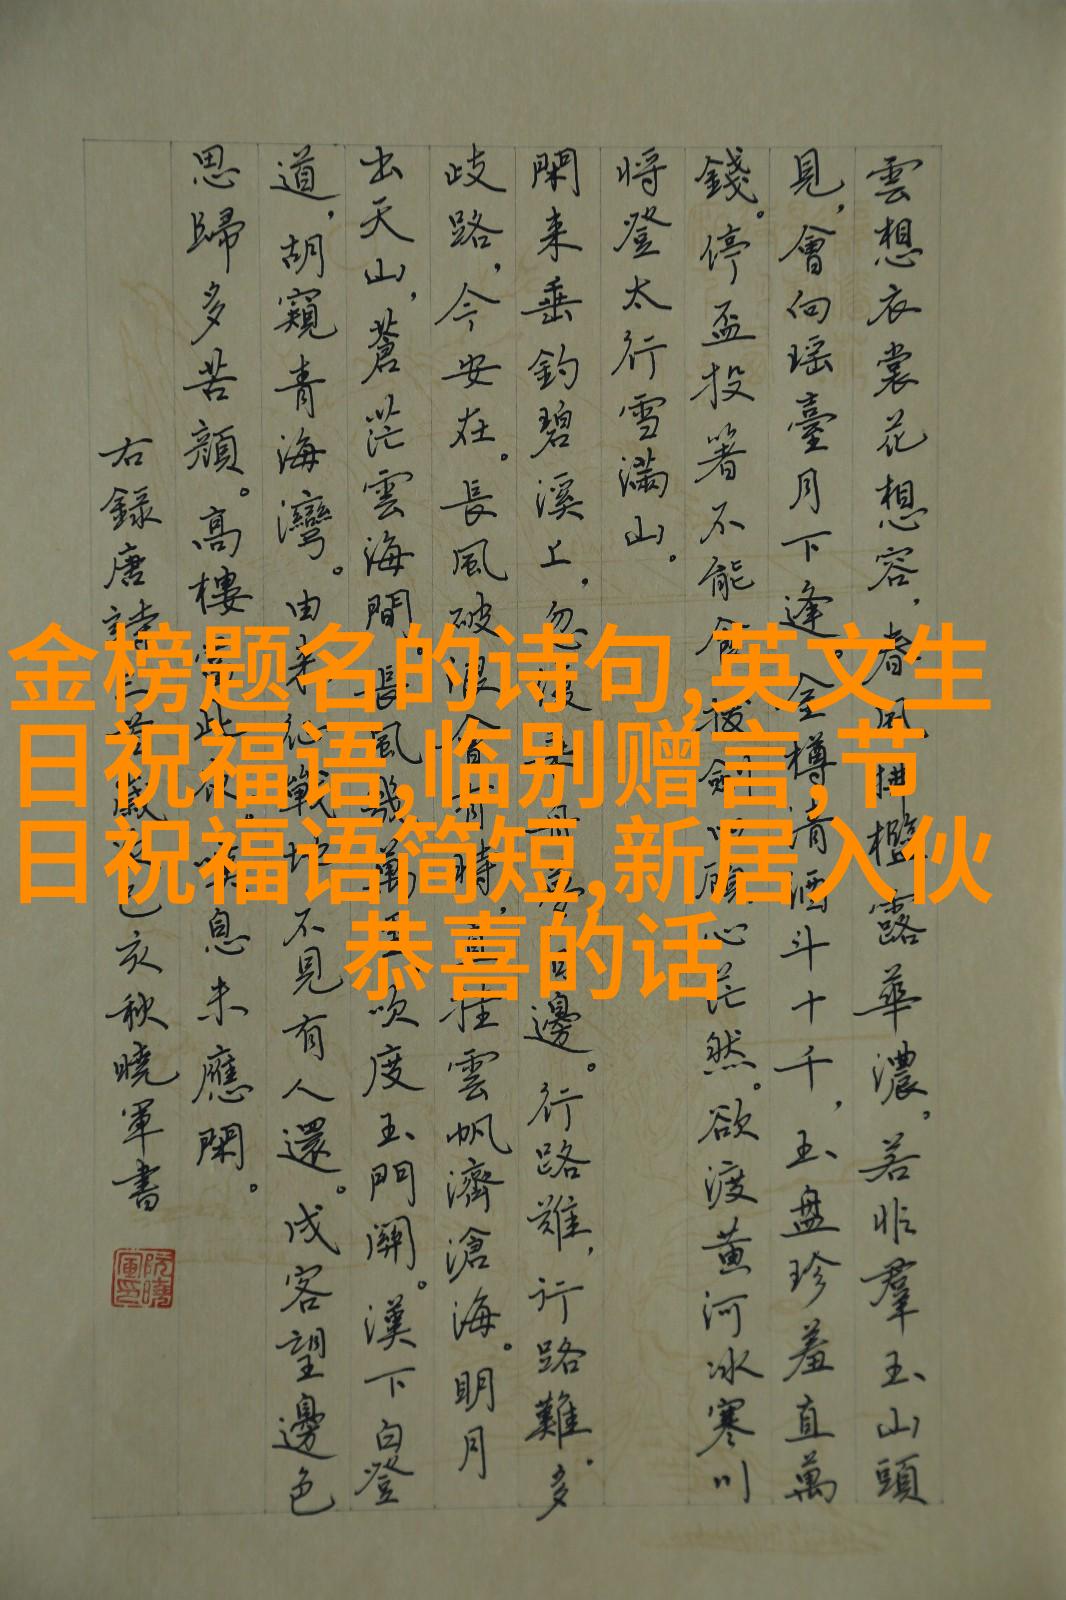 金榜题名的诗句,英文生
日祝福语,临别赠言,节
日祝福语简短,新居入伙
恭喜的话
雲想衣裳花想容，春風拂檻露華濃。若非羣玉山頭
見，會向瑶臺月下逢。金樽清酒斗十千，玉盤珍羞直萬
錢。停盃投箸不能食拔劍四顧心茫然。欲渡黄河冰寒川
將登太行雪滿山。
閑来垂釣碧溪上，忽復乘舟夢日邊。行路難，行路難。多
歧路，今安在。長風破浪會有時，直挂雲帆濟滄海。明月
出天山，蒼茫雲海間。長風幾萬里，吹度玉門關。漢下白登
道，胡窺青海灣。由来征戰地，不見有人還。戍客望邊色
思歸多苦顔。高樓當此夜，嘆息未應閑。
右録唐詩三首歲次己亥秋曉軍書
阮曉軍印